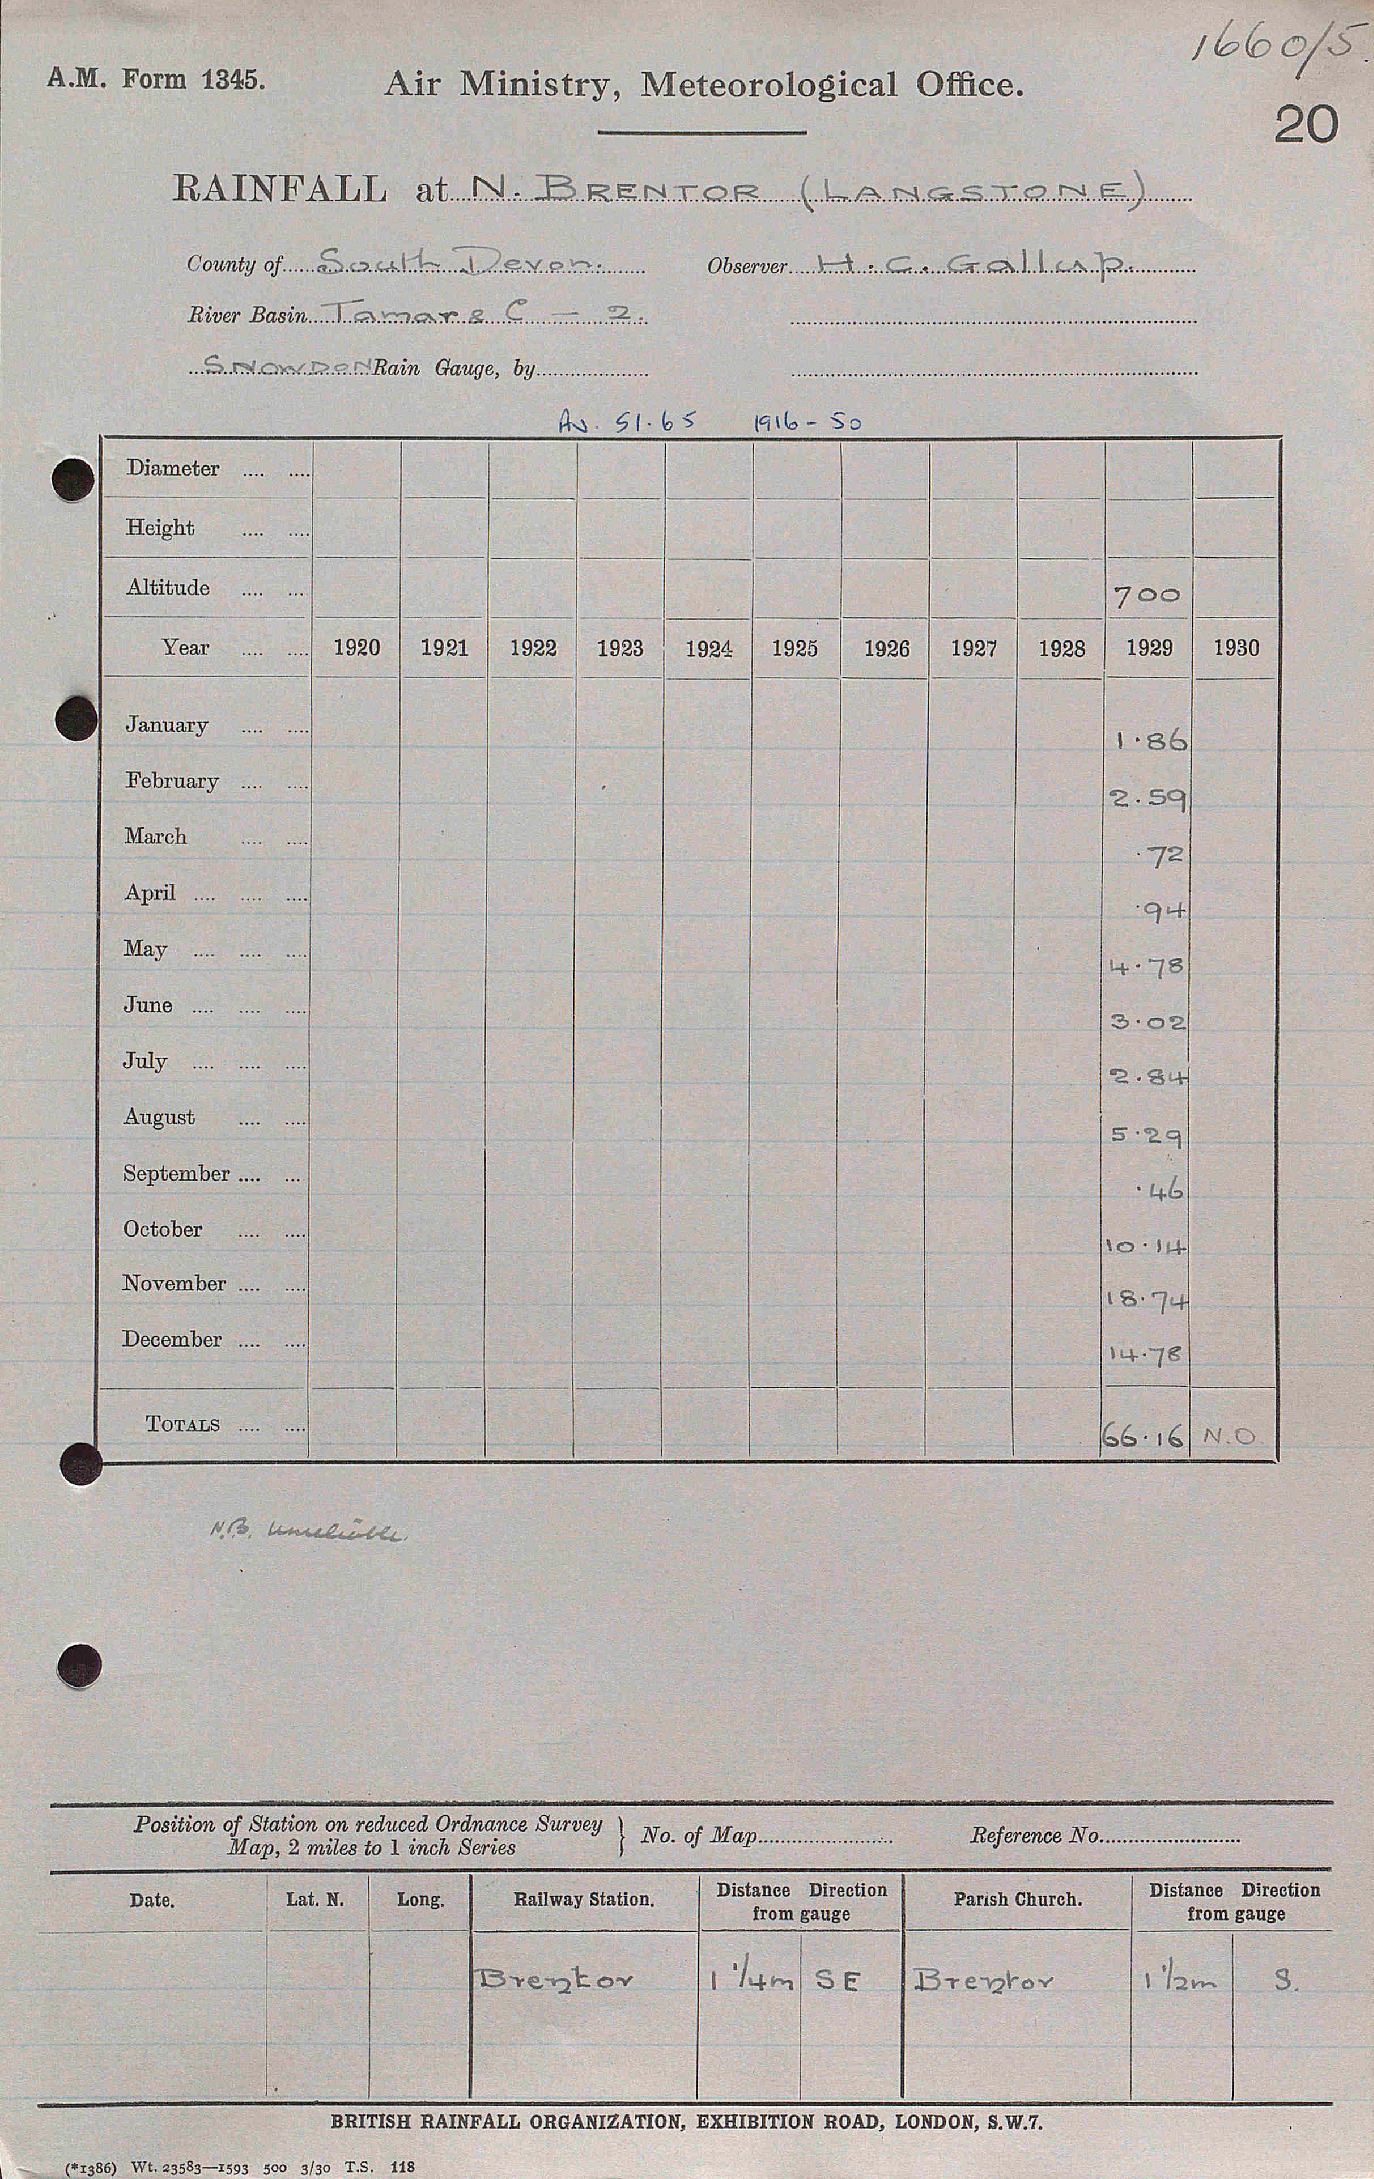 1660/5.
A.M. Form 1345. Air Ministry, Meteorological Office.
20
RAINFALL at N. BRENTOR (LANGSTONE)
County of South Devon. Observer H. C. Gallup.
River Basin Tamar & C — 2.
SNOWDON Rain Gauge, by
Av. 51.65 1916 - 50
Diameter
Height
Altitude 700
Year 1920 1921 1922 1923 1924 1925 1926 1927 1928 1929 1930
January 1.86
February 2.59
March .72
April .94
May 4.78
June 3.02
July 2.84
August 5.29
September .46
October 10.14
November 18.74
December 14.78
TOTALS 66.16 N.O.
N.B. Unreliable.
Position of Station on reduced Ordnance Survey
Map, 2 miles to 1 inch Series } No. of Map Reference No.
Date. Lat. N. Long. Railway Station. Distance Direction from gauge Parish Church. Distance Direction from gauge
Brentor 1 1/4m SE Brentor 1 1/2m S.
BRITISH RAINFALL ORGANIZATION, EXHIBITION ROAD, LONDON, S.W.7.
(*1386) Wt. 23583—1593 500 3/30 T.S. 118